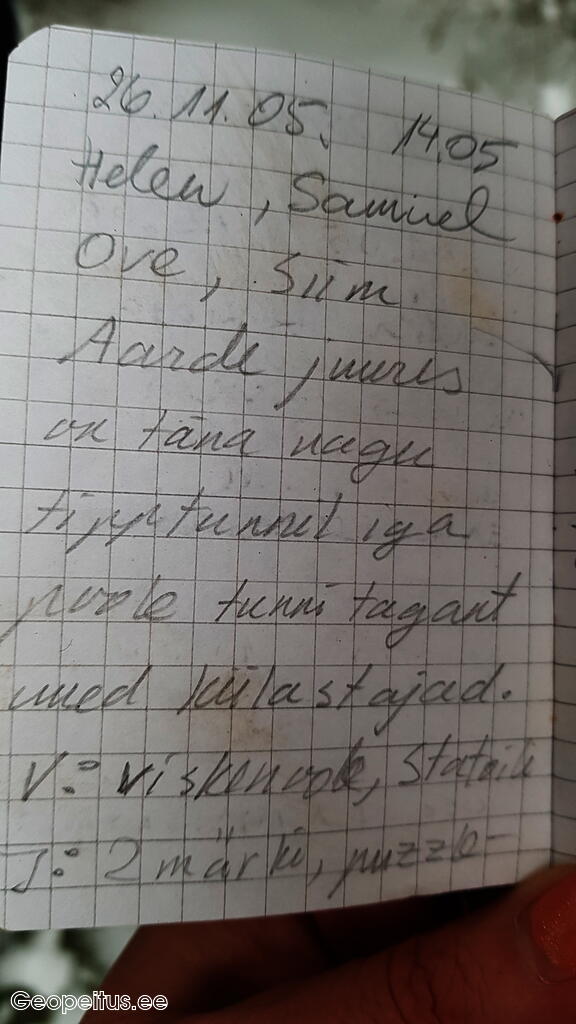 26.11.05. 14.05
Helen, Samuel
Ove, Siim
Aarde juures
on täna nagu
tipptunnil iga
poole tunni tagant
uued külastajad.
V: viskenoole,
J: 2 märki, puzzle-
Geopeitus.ee